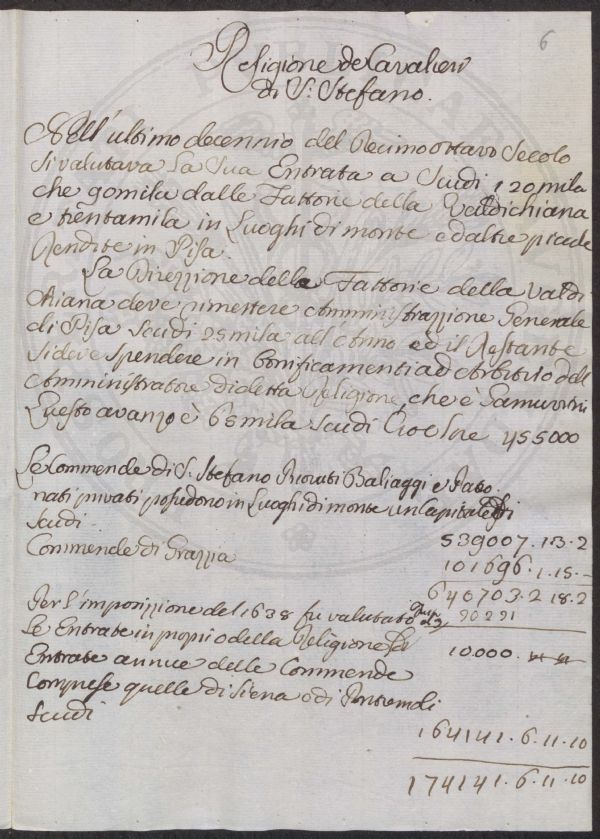 6
Religione de Cavalieri
di S. Stefano.
Nell'ultimo decennio del Decimo ottavo Secolo
si valutava La Sua Entrata a Scudi 120 mila
che 90 mila dalle Fattorie della Valdichiana
e trentamila in Luoghi di monte ed altre piccole
Rendite in Pisa.
La Direzzione delle Fattorie della Valdi
chiana deve rimettere Amministrazzione Generale
di Pisa Scudi 25 mila all'Anno ed il Restante
si deve spendere in bonificamenti ad Arbitrio dell
Amministratore di detta Religione, che è Gamurrini
Questo avanzo è 65 mila Scudi Cioè lire 455000
Le Commende di S. Stefano Priorati Baliaggi e Pado
nati privati posiedono in Luoghi di monte un Capitale di
Scudi 539007.13.2
Commende di Grazzia 101696.1.15.—
640703.2 18.2
Per l'imposizzione del 1638 fu valutato 90291
Le Entrate in proprio della Religione 10.000.
Entrate annue delle Commende
Comprese quelle di Siena e di Pontremoli
Scudi 164141.6.11.10
174141.6.11.10